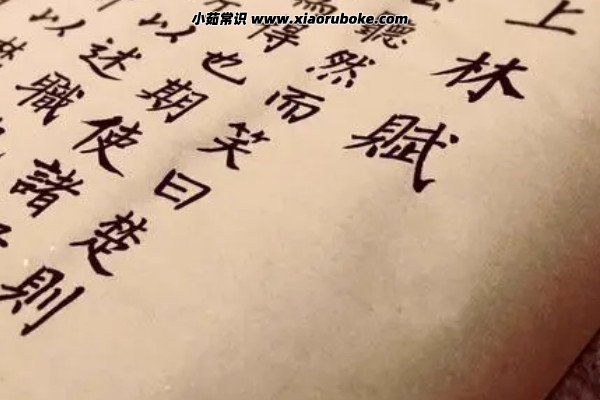 小茹常识 www.xiaoruboke.com
上林賦
聽然而笑曰楚則
為得也期使諸
以述職